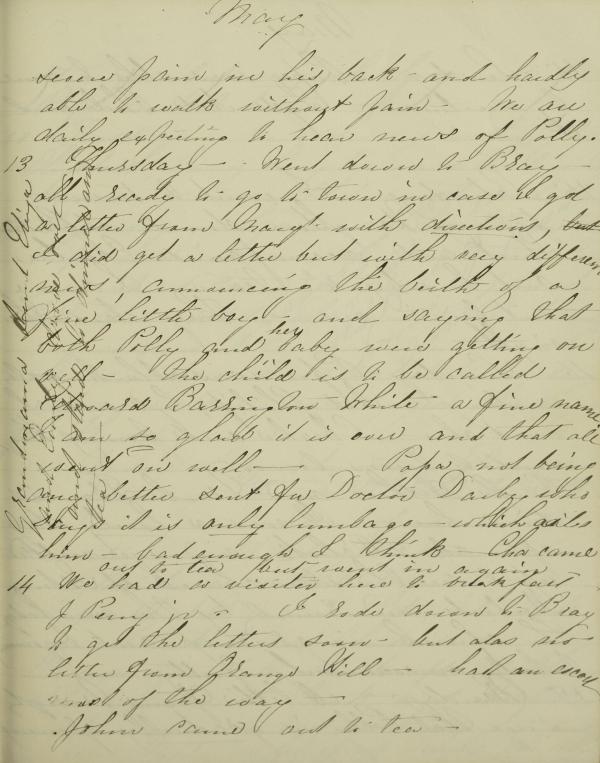 May
severe pain in his back - and hardly
able to walk without pain - We are
daily expecting to hear news of Polly.
13 Thursday - Went down to Bray
all ready to go to town in case I got
a letter from Margt with directions, but
I did get a letter but with very different
news, announcing the birth of a
fine little boy - and saying that
both Polly and her baby were getting on
well - The child is to be called
Edward Barrington White a fine name
I am so glad it is over and that all
went on well - Papa not being
any better sent for Doctor Darby who
says it is only lumbago - which ails
him - bad enough I think - Cha came
out to tea but went in again
14 We had a visitor here to breakfast
J Perry jr - I rode down to Bray
to get the letters soon - but alas no
letter from Orange Hill - had an escort
most of the way -
John came out to tea -
Grandmama Aunt Eliza
and
tea